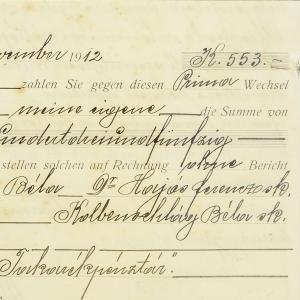 vember 1912 K. 553.-
zahlen Sie gegen diesen Prima Wechsel
meine eigene die Summe von
hundertdreiundfünfzig
stellen solchen auf Rechnung ohne Bericht
Béla Dr Hajós Ferencz sk.
Kolbenschlag Béla sk.
Takarékpénztár."